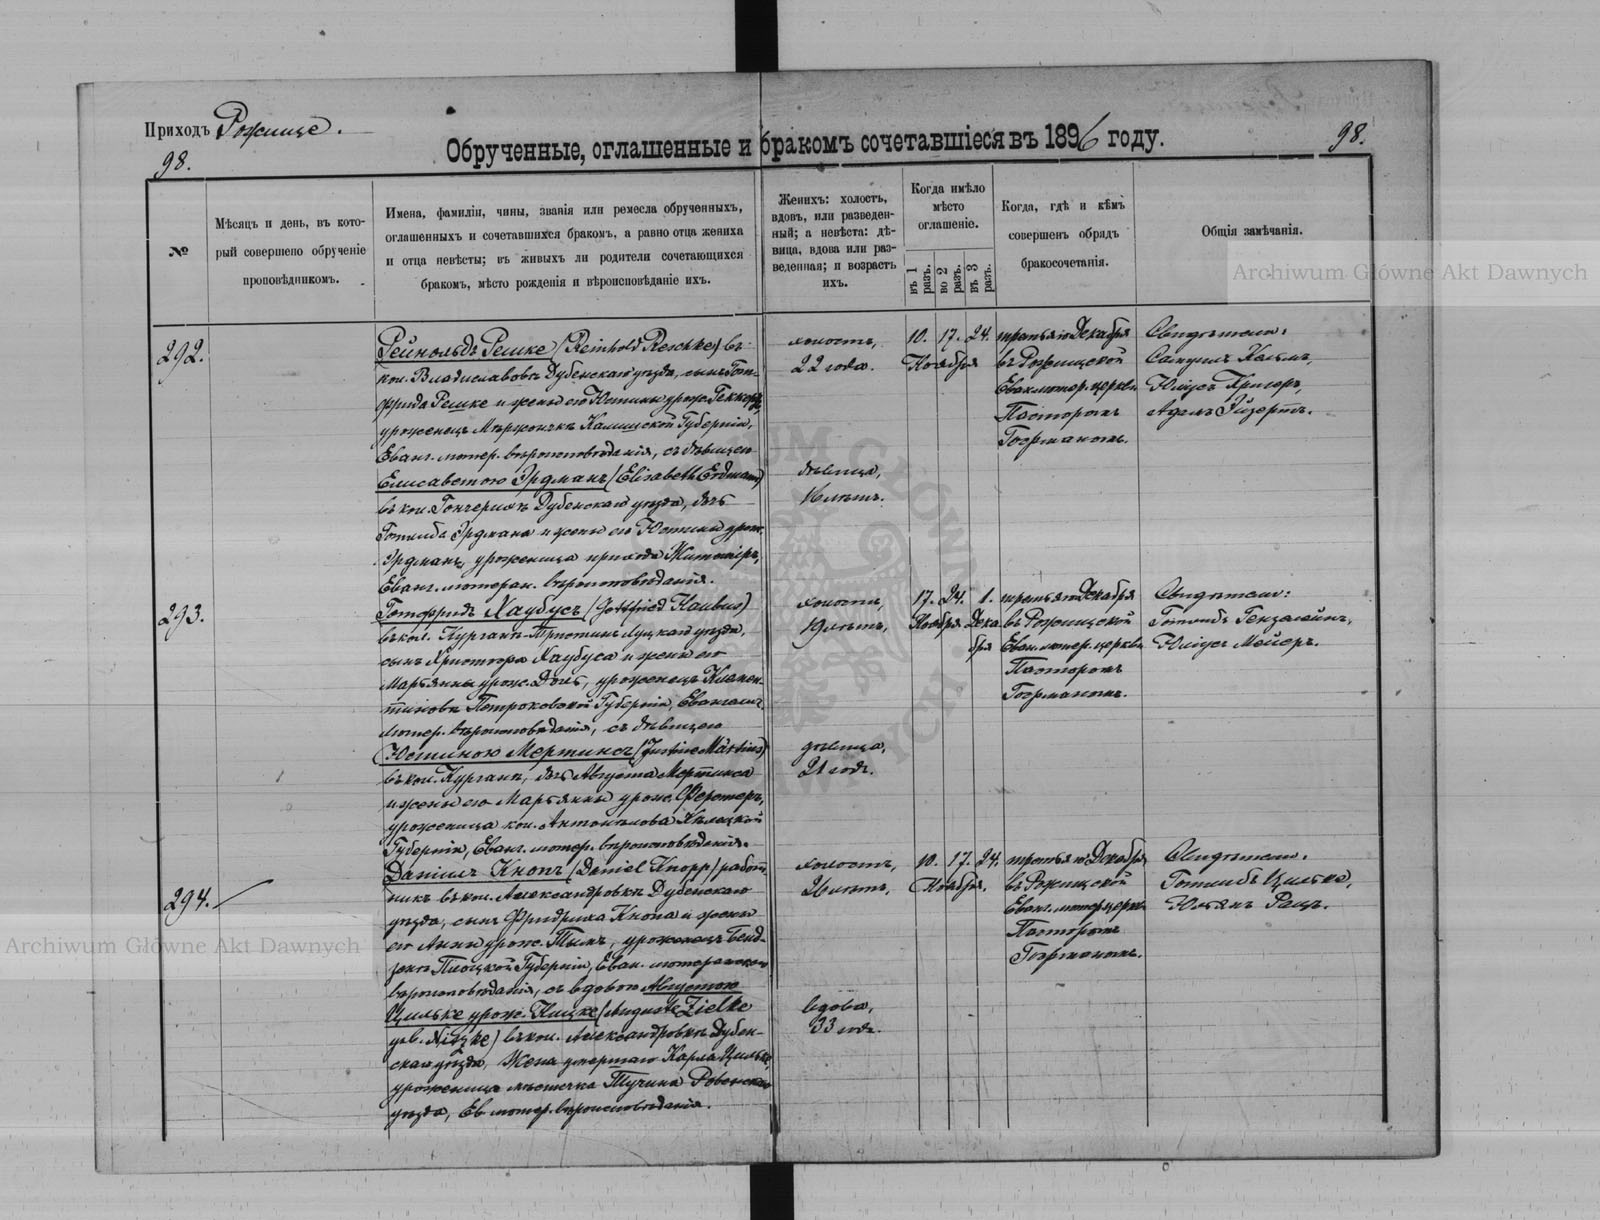 Приходъ Рожище.
98.
Обрученные, оглашенные и бракомъ сочетавшіеся въ 1896 году.
98.
№
Мѣсяцъ и день, въ кото-
рый совершено обрученіе
проповѣдникомъ.
Имена, фамиліи, чины, званія или ремесла обрученныхъ,
оглашенныхъ и сочетавшихся бракомъ, а равно отца жениха
и отца невѣсты; въ живыхъ ли родители сочетающихся
бракомъ, мѣсто рожденія и вѣроисповѣданіе ихъ.
Женихъ: холостъ,
вдовъ, или разведен-
ный; а невѣста: дѣ-
вица, вдова или раз-
веденная; и возрастъ
ихъ.
Когда имѣло
мѣсто
оглашеніе.
въ 1 разъ.
во 2 разъ.
въ 3 разъ.
Когда, гдѣ и кѣмъ
совершенъ обрядъ
бракосочетанія.
Общія замѣчанія.
Archiwum Główne Akt Dawnych
292.
Рейнольдъ Решке (Reinhold Reschke) въ
кол. Владиславовкѣ Дубенскаго уѣзда, сынъ Гот-
фрида Решке и жены его Юстины урож.
уроженецъ Калишской Губерніи,
Еванг. лютер. вѣроисповѣданія, съ дѣвицею
Елисаветою Эрдманъ (Elisabeth Erdmann)
въ кол. Дубенскаго уѣзда, дочь
Готлиба Эрдмана и жены его Юстины урож.
Эрдманъ, уроженица прихода Житоміръ,
Еванг. лютеран. вѣроисповѣданія.
холостъ,
22 года.
дѣвица,
лѣтъ.
10. 17. 24.
Ноября
третьяго Декабря
въ Рожищской
Еванг. лютер. церкви
Пасторомъ
Свидѣтели:
Самуилъ
Юліусъ Кригеръ,
293.
Готфридъ Хаубусъ (Gottfried Haubus)
въ кол. Курганъ Луцкаго уѣзда,
сынъ Христофа Хаубуса и жены его
Марьянны урож. уроженецъ
Петроковской Губерніи, Евангел.
лютер. вѣроисповѣданія, съ дѣвицею
Юстиною Мертинсъ (Justine Märtins)
въ кол. Курганъ, дочь Августа Мертинса
и жены его Марьянны урож.
уроженица кол. Антоніелова Кѣлецкой
Губерніи, Еванг. лютер. вѣроисповѣданія.
холостъ,
19 лѣтъ,
дѣвица,
21 годъ.
17. 24. 1.
Ноября Дека
бря
третьяго Декабря
въ Рожищской
Еван. лютер. церкви
Пасторомъ
Свидѣтели:
Готлибъ
Юліусъ Мейеръ.
294.
Даніилъ Кнопъ (Daniel Knopp) работ-
никъ въ кол. Александровкѣ Дубенскаго
уѣзда, сынъ Фридриха Кнопа и жены
его Анны урож. Тымъ, уроженецъ
Плоцкой Губерніи, Еван. лютеранскаго
вѣроисповѣданія, съ вдовою Августою
Цильке урож. Ницке (Auguste Zielke
geb. Nitzke) въ кол. Александровкѣ Дубен-
скаго уѣзда, жена умершаго Карла Цильке,
уроженица мѣстечка Тучина Ровенскаго
уѣзда, Ев. лютер. вѣроисповѣданія.
холостъ,
26 лѣтъ,
вдова,
33 годъ.
10. 17. 24.
Ноября.
третьяго Декабря
въ Рожищской
Еванг. лютер. церкви
Пасторомъ
Свидѣтели:
Готлибъ Цильке,
Archiwum Główne Akt Dawnych